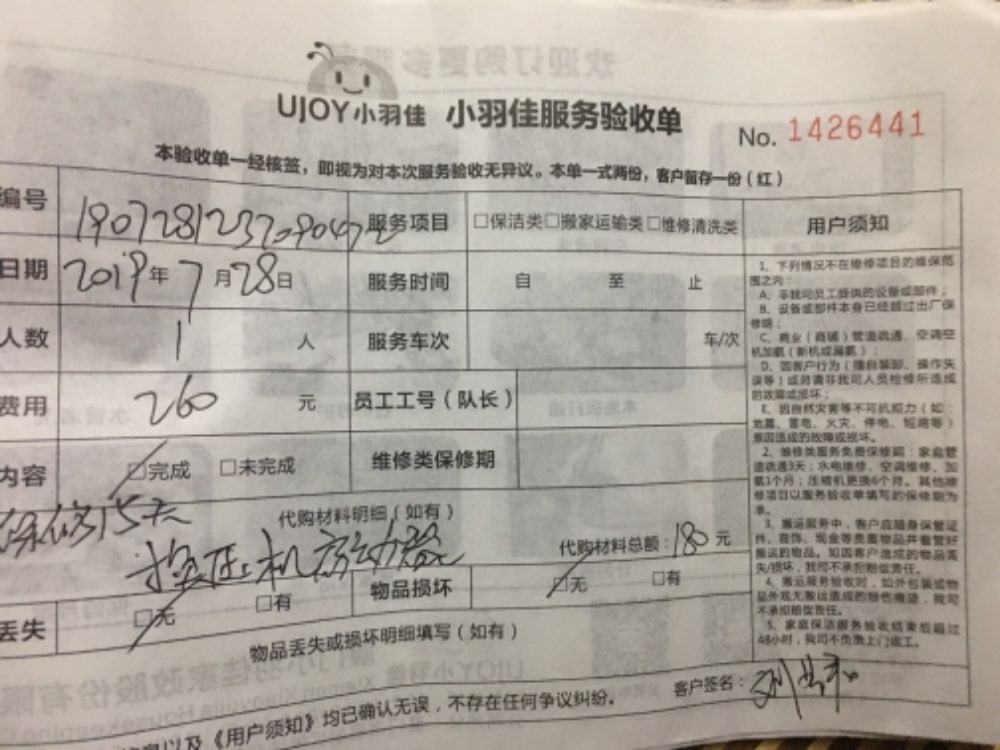 UJOY小羽佳 小羽佳服务验收单 No. 1426441
本验收单一经核签，即视为对本次服务验收无异议。本单一式两份，客户留存一份（红）
编号 服务项目 □保洁类□搬家运输类□维修清洗类 用户须知
日期 2019年7月28日 服务时间 自 至 止
人数 1 人 服务车次 车/次
费用 260 元 员工工号（队长）
内容 □完成 □未完成 维修类保修期
保修15天
代购材料明细（如有）
换压机启动器 代购材料总额：180元
丢失 □无 □有 物品损坏 □无 □有
物品丢失或损坏明细填写（如有）
以及《用户须知》均已确认无误，不存在任何争议纠纷。
客户签名：
1、下列情况不在维修项目的维保范
围之内：
A、非我司员工提供的设备或部件；
B、设备或部件本身已经超过出厂保
修期；
C、商业（商铺）管道疏通、空调空
机加氨（新机或漏氨）；
D、因客户行为（擅自装卸、操作失
误等）或另请非我司人员检修所造成
的故障或损坏；
E、因自然灾害等不可抗拒力（如：
地震、雷电、火灾、停电、短路等）
原因造成的故障或损坏。
2、维修类服务免费保修期：家庭管
道疏通3天；水电维修、空调维修、加
氨1个月；压缩机更换6个月。其他维
修项目以服务验收单填写的保修期为
准。
3、搬运服务中，客户应随身保管证
件、首饰、现金等贵重物品并看管好
搬运的物品。如因客户造成的物品丢
失/损坏，我司不承担赔偿责任。
4、搬运服务验收时，如外包装或物
品外观无搬运造成的损伤痕迹，我司
不承担赔偿责任。
5、家庭保洁服务验收结束后超过
48小时，我司不负责上门返工。